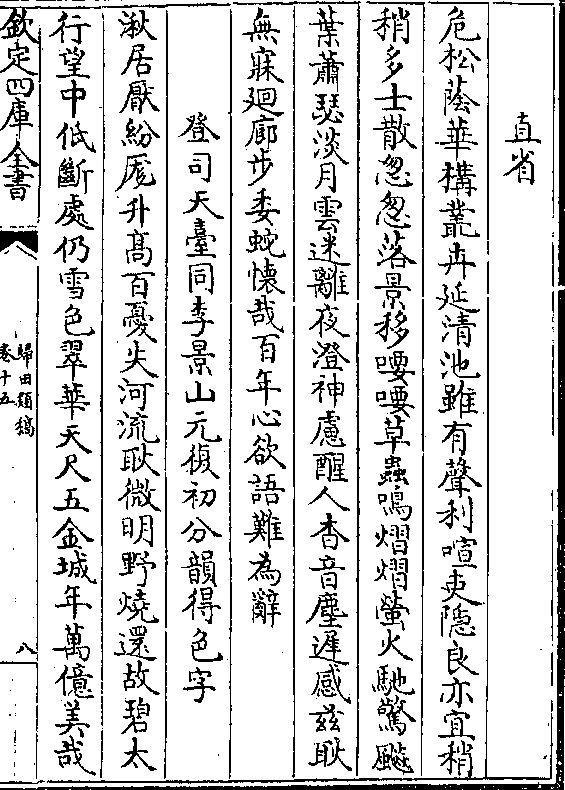 直省
危松蔭華搆叢卉延清池雖有聲利喧吏隱良亦宜稍
稍多士散忽忽落景移喓喓草蟲鳴熠熠螢火馳驚飈
葉蕭瑟淡月雲迷離夜澄神慮醒人杳音塵遲感兹耿
無寐廻廊步委蛇懷哉百年心欲語難為辭
登司天臺同李景山元復初分韻得色字
湫居厭紛厖升髙百憂失河流耿微明野燒還故碧太
行望中低斷處仍雪色翠華天尺五金城年萬億美哉
欽定四庫全書
歸田類稿
卷十五
八